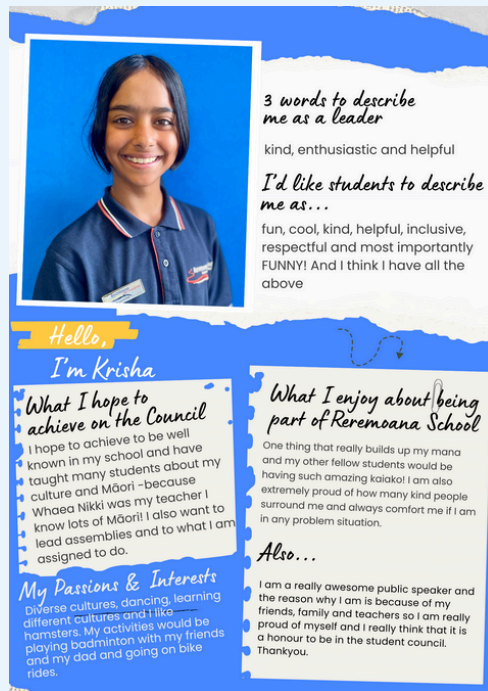 3 words to describe
me as a leader
kind, enthusiastic and helpful
I'd like students to describe
me as...
fun, cool, kind, helpful, inclusive,
respectful and most importantly
FUNNY! And I think I have all the
above
Hello,
I'm Krisha
What I hope to
achieve on the Council
I hope to achieve to be well
known in my school and have
taught many students about my
culture and Māori -because
Whaea Nikki was my teacher I
know lots of Māori! I also want to
lead assemblies and to what I am
assigned to do.
My Passions & Interests
Diverse cultures, dancing, learning
different cultures and I like
hamsters. My activities would be
playing badminton with my friends
and my dad and going on bike
rides.
What I enjoy about being
part of Reremoana School
One thing that really builds up my mana
and my other fellow students would be
having such amazing kaiako! I am also
extremely proud of how many kind people
surround me and always comfort me if I am
in any problem situation.
Also...
I am a really awesome public speaker and
the reason why I am is because of my
friends, family and teachers so I am really
proud of myself and I really think that it is
a honour to be in the student council.
Thankyou.